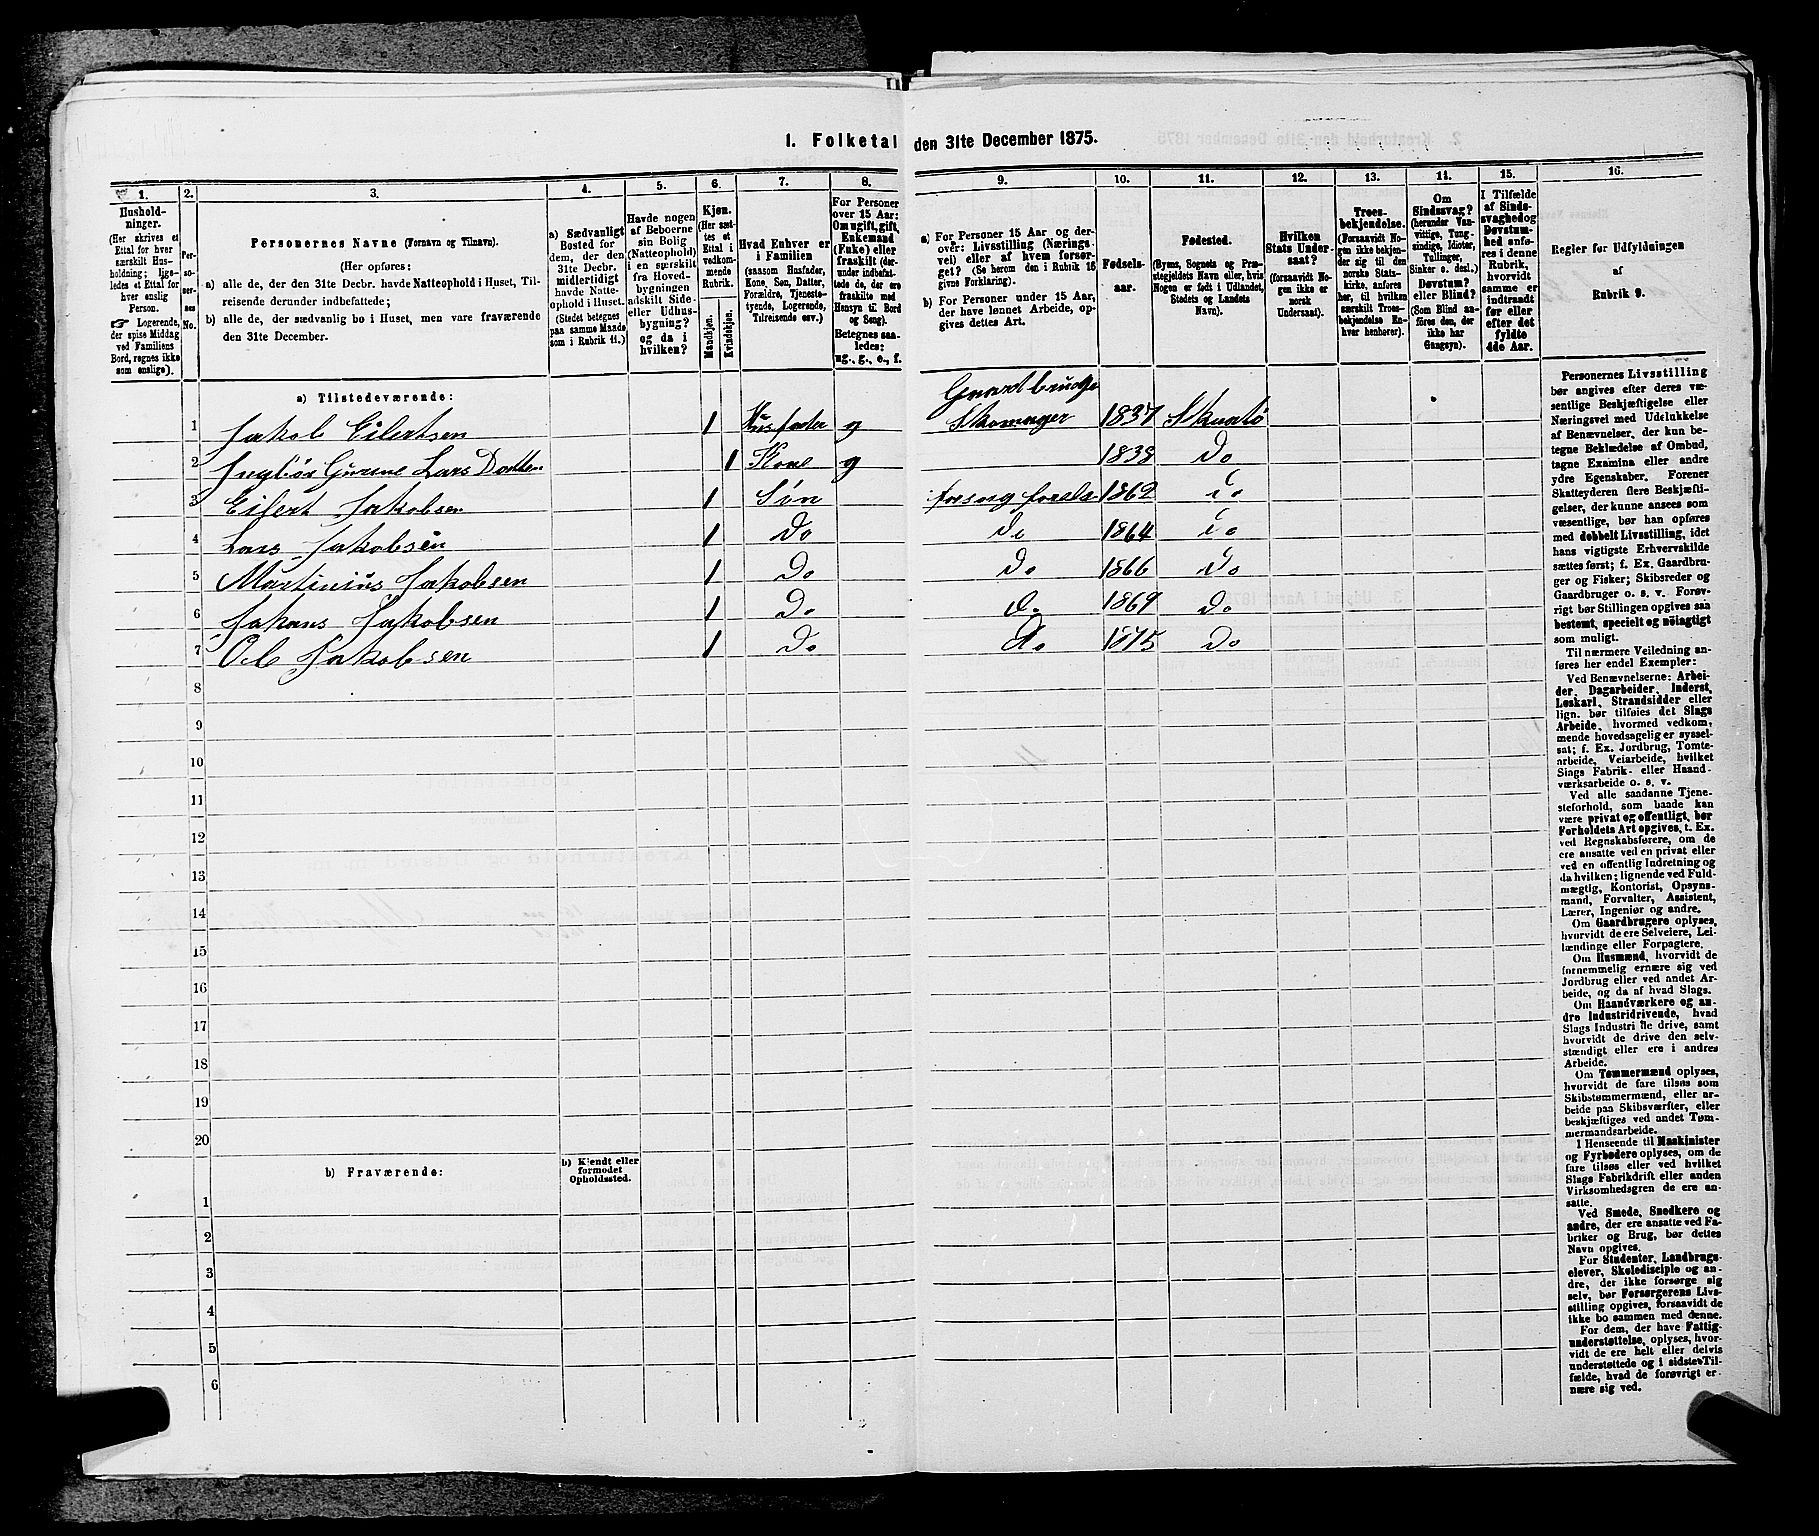 1. Folketal den 31te December 1875.
1. 2. 3. 4. 5. 6. 7. 8. 9. 10. 11. 12. 13. 14. 15. 16.
Hushold-
ninger.
(Her skrives et
Ettal for hver
særskilt Hus-
holdning; lige-
ledes et Ettal for
hver enslig
Person.
☞ Logerende,
der spise Middag
ved Familiens
Bord, regnes ikke
som enslige).
Per-
so-
ner-
nes
No.
Personernes Navne (Fornavn og Tilnavn).
(Her opføres:
a) alle de, der den 31te Decbr. havde Natteophold i Huset, Til-
reisende derunder indbefattede;
b) alle de, der sædvanlig bo i Huset, men vare fraværende
den 31te December.
a) Sædvanligt
Bosted for
dem, der den
31te Decbr.
midlertidigt
havde Natte-
ophold i Huset.
(Stedet betegnes
paa samme Maade
som i Rubrik 11.)
Havde nogen
af Beboerne
sin Bolig
(Natteophold)
i en særskilt
fra Hoved-
bygningen
adskilt Side-
eller Udhus-
bygning?
og da i
hvilken?
Kjøn.
(Her sæt-
tes et
Ettal i
vedkom-
mende
Rubrik.
Mandkjøn.
Kvindekjøn.
Hvad Enhver er
i Familien
(saasom Husfader,
Kone, Søn, Datter,
Forældre, Tjeneste-
tyende, Logerende,
Tilreisende osv.)
For Personer
over 15 Aar:
Om ugift, gift,
Enkemand
(Enke) eller
fraskilt (der-
under indbefat-
tede de, der ere
fraskilte med
Hensyn til Bord
og Seng).
Betegnes saa-
ledes:
ug., g., e., f.
a) For Personer over 15 Aar og der-
over: Livsstilling (Nærings-
vei) eller af hvem forsør-
get? (Se herom den i Rubrik 16
givne Forklaring).
b) For Personer under 15 Aar,
der have lønnet Arbeide, op-
gives dettes Art.
Fødsels-
aar.
Fødested.
(Byens, Sognets og Præ-
stegjeldets Navn eller, hvis
Nogen er født i Udlandet,
Stedets og Landets
Navn).
Hvilken
Stats Under-
saat?
(forsaavidt No-
gen ikke er
norsk
Undersaat).
Troes-
bekjendelse.
(Forsaavidt No-
gen ikke bekjen-
der sig til den
norske Stats-
kirke, anføres
her, til hvilken
særskilt Troes-
bekjendelse En-
hver henhører).
Om
Sindssvag?
(herunder Van-
vittige, Tung-
sindige, Idioter,
Tullinger,
Sinker o. desl.)
Døvstum?
eller Blind?
(Som Blind an-
føres den, der
ikke har
Gangsyn).
I Tilfælde
af Sinds-
svaghed og
Døvstum-
hed anfø-
res i denne
Rubrik,
hvorvidt
samme er
indtraadt
før eller
efter det
fyldte
4de Aar.
Regler før Udfyldningen
af
Rubrik 9.
a) Tilstedeværende:
Gaardbruger
1 Jakob Eilertsen 1 Husfader g Skomager 1837 Skaatø
2 Ingbør Gurine Lars Datter 1 Kone g 1838 Do
3 Eilert Jakobsen 1 Søn forsørg foræld 1862 Do
4 Lars Jakobsen 1 Do Do 1864 Do
5 Martinius Jakobsen 1 Do Do 1866 Do
6 Johans Jakobsen 1 Do Do 1869 Do
7 Ole Jakobsen 1 Do Do 1875 Do
8
9
10
11
12
13
14
15
16
17
18
19
20
b) Fraværende:
b) Kjendt eller
formodet
Opholdssted.
1
2
3
4
5
6
Personernes Livsstilling
bør angives efter deres væ-
sentlige Beskjæftigelse eller
Næringsvei med Udelukkelse
af Benævnelser, der kun be-
tegne Beklædelse af Ombud,
tagne Examina eller andre
ydre Egenskaber. Forener
Skatteyderen flere Beskjæfti-
gelser, der kunne ansees som
væsentlige, bør han opføres
med dobbelt Livsstilling, idet
hans vigtigste Erhvervskilde
sættes først; f. Ex. Gaardbru-
ger og Fisker; Skibsreder og
Gaardbruger o. s. v. Forøv-
rigt bør Stillingen opgives saa
bestemt, specielt og nöiagtigt
som muligt.
Til nærmere Veiledning an-
føres her endel Exempler:
Ved Benævnelserne: Arbei-
der, Dagarbeider, Inderst,
Løskarl, Strandsidder eller
lign. bør tilføies det Slags
Arbeide, hvormed vedkom-
mende hovedsagelig er syssel-
sat; f. Ex. Jordbrug, Tomte-
arbeide, Veiarbeide, hvilket
Slags Fabrik- eller Haand-
værksarbeide o. s. v.
Ved alle saadanne Tjene-
steforhold, som baade kan
være privat og offentligt, bør
Forholdets Art opgives, t. Ex.
ved Regnskabsførere, om de
ere ansatte ved en privat eller
ved en offentlig Indretning og
da hvilken; lignende ved Fuld-
mægtig, Kontorist, Opsyns-
mand, Forvalter, Assistent,
Lærer, Ingeniør og andre.
Om Gaardbrugere oplyses,
hvorvidt de ere Selveiere, Lei-
lændinge eller Forpagtere.
Om Husmænd, hvorvidt de
fornemmelig ernære sig ved
Jordbrug eller ved andet Ar-
beide, og da af hvad Slags.
Om Haandværkere og an-
dre Industridrivende, hvad
Slags Industri de drive, samt
hvorvidt de drive den selv-
stændigt eller ere i andres
Arbeide.
Om Tømmermænd oplyses,
hvorvidt de fare tilsøs som
Skibstømmermænd, eller ar-
beide paa Skibsværfter, eller
beskjæftiges ved andet Tøm-
mermandsarbeide.
I Henseende til Maskinister
og Fyrbødere oplyses, om de
fare tilsøs eller ved hvilket
Slags Fabrikdrift eller anden
Virksomhedsgren de ere an-
satte.
Ved Smede, Snedkere og
andre, der ere ansatte ved Fa-
briker og Brug, bør dettes
Navn opgives.
For Studenter, Landbrugs-
elever, Skoledisciple og an-
dre, der ikke forsørge sig
selv, bør Forsørgerens Livs-
stilling opgives, forsaavidt de
ikke bo sammen med denne.
For dem, der have Fattig-
understøttelse, oplyses, hvor-
vidt de ere helt eller delvis
understøttede og i sidste Til-
fælde, hvad de forøvrigt er-
nære sig ved.